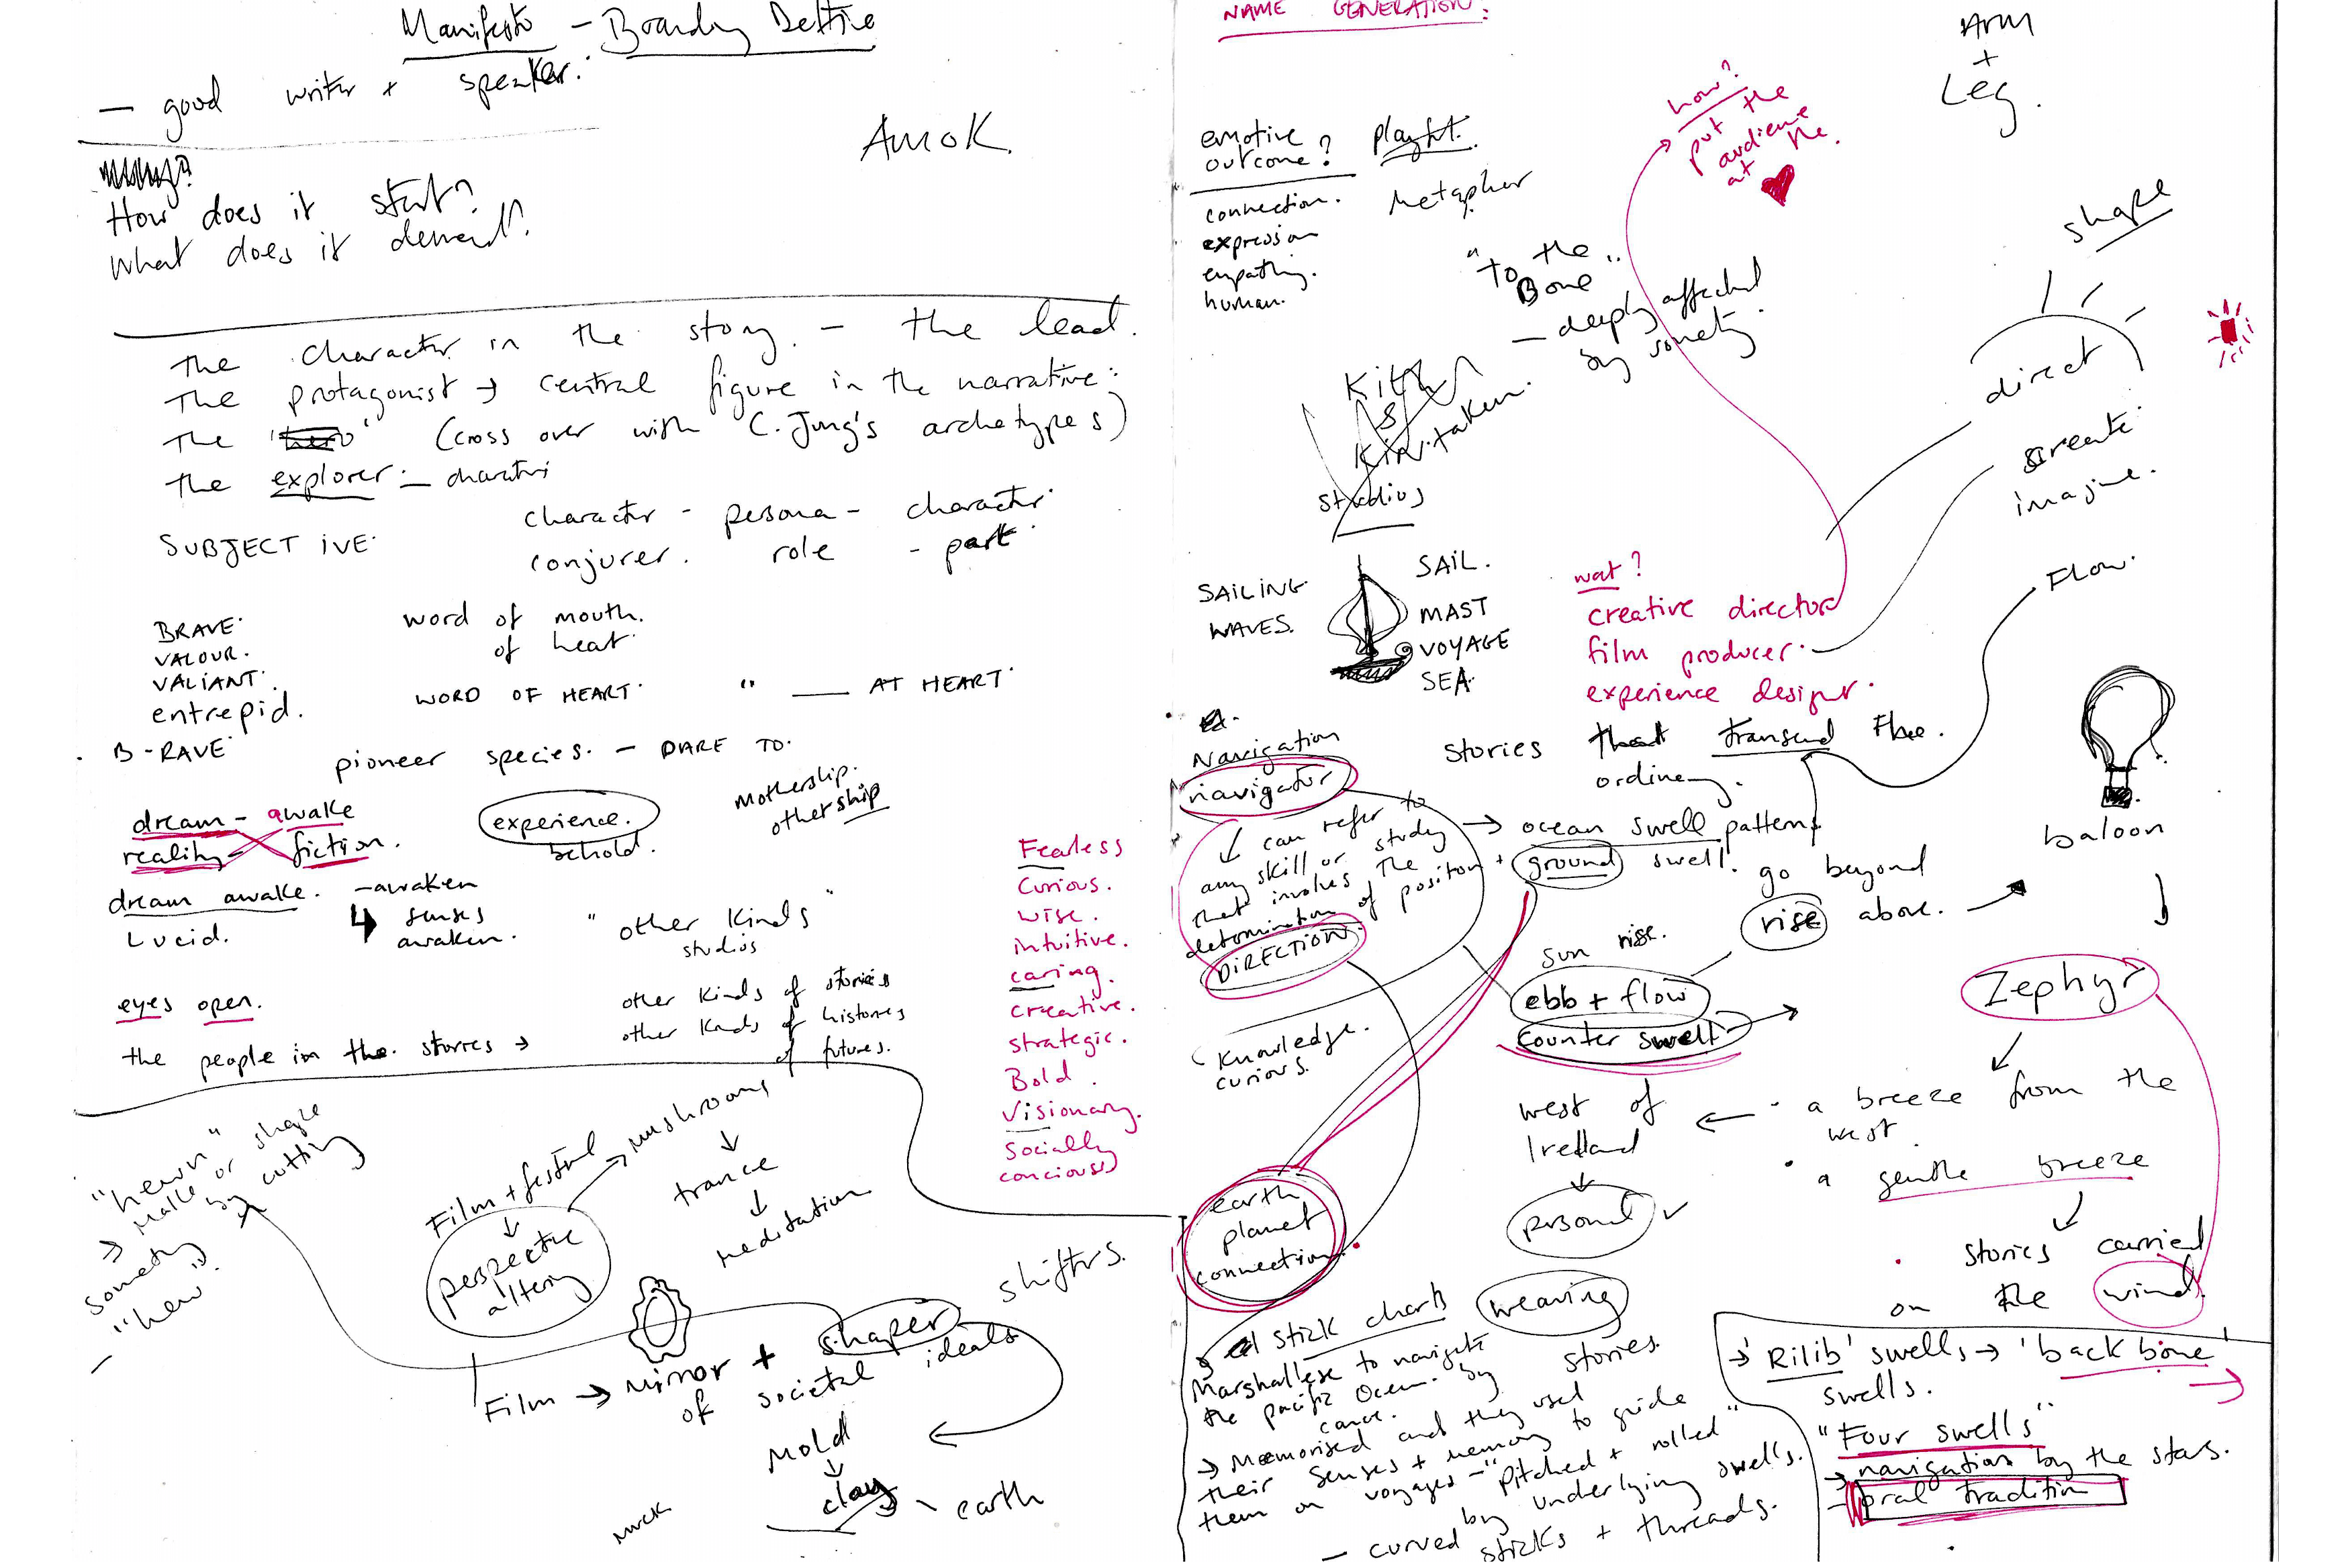 Manifesto - Branding Deltire
- good writer + speaker.
AMOK
How does it start?
What does it demand?
The character in the story - the lead.
The protagonist → central figure in the narrative:
The 'hero' (cross over with C. Jung's archetypes)
the explorer -
SUBJECTIVE.
character - persona - character
conjurer. role - part
BRAVE.
VALOUR.
VALIANT.
entrepid.
B-RAVE
word of mouth.
of heat.
WORD OF HEART. " — AT HEART.
pioneer species. - DARE TO.
dream - awake
reality - fiction.
experience.
behold.
Mothership.
othership
dream awake. - awaken
Lucid.
senses
awaken.
"other kinds"
studios
eyes open.
the people in the stories →
other kinds of stories
other kinds of histories
of futures.
Fearless
Curious.
wise.
intuitive.
caring.
creative.
strategic.
Bold.
Visionary.
Socially
concious)
"hewn"
→ Make or shape
something by cutting
"hew".
Film + festival → mushrooms
perspective
altering
trance
meditation
shifters.
Film → mirror + shaper
of societal ideals
Mold
clay - earth
muck
NAME GENERATION:
ARM
+
Leg.
emotive
outcome?
connection.
expression
empathy.
human.
playful.
Metaphor
how?
put the
audience
at the
"To the
Bone"
- deeply affected
by somety
Kith
&
Kin.taken.
studios
shape
direct
create.
imagine.
Flow.
SAILING
WAVES.
SAIL.
MAST
VOYAGE
SEA.
wat?
creative director
film producer.
experience designr.
Navigation
navigator
can refer to
any skill or study
that involves the
determination of position +
DIRECTION.
stories that transend the
ordinery.
→ ocean swell patterns
ground swell.
go beyond
rise above.
baloon
sun rise.
ebb + flow
counter swell
Knowledge.
curious.
Zephyr
a breeze from the
west.
a gentle breeze
west of
Ireland
personal
stories carried
on the wind.
earth
planet
connection.
weaving
stories.
stick charts
Marshallese to navigate
the pacific Ocean by
canoe.
→ Memorised and they used
their senses + memory to guide
them on voyages - "pitched + rolled"
by underlying swells.
- curved sticks + threads.
→ 'Rilib' swells → 'back bone'
swells.
"Four swells"
→ navigation by the stars.
- oral tradition